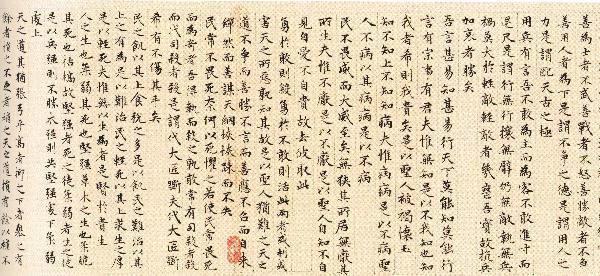 善為士者不武善戰者不怒善勝敵者不爭
善用人者為下是謂不爭之德是謂用人之
力是謂配天古之極
用兵有言吾不敢為主而為客不敢進寸而
退尺是謂行無行攘無臂仍無敵執無兵
禍莫大於輕敵輕敵者幾喪吾寶故抗兵
加哀者勝矣
吾言甚易知甚易行天下莫能知莫能行
言有宗事有君夫惟無知是以不我知也知
我者希則我貴矣是以聖人被褐懷玉
知不知上不知知病夫惟病病是以不病聖
人不病以其病病是以不病
民不畏威而大威至矣無狹其所居無厭其
所生夫惟不厭是以不厭是以聖人自知不自
見自愛不自貴故去彼取此
勇於敢則殺勇於不敢則活此兩者或利或
害天之所惡孰知其故是以聖人猶難之天之
道不爭而善勝不言而善應不召而自來
繟然而善謀天網恢恢踈而不失
民常不畏死奈何以死懼之若使民常畏死
而為奇者吾得執而殺之孰敢常有司殺者殺
而代司殺者殺是謂代大匠斲夫代大匠斲
希有不傷其手矣
民之飢以其上食稅之多是以飢民之難治以其
上之有為是以難治民之輕死以其上求生之厚
是以輕死夫惟無以生為者是賢於貴生
人之生也柔弱其死也堅強草木之生也柔脆
其死也枯槁故堅強者死之徒柔弱者生之徒
是以兵強則不勝木強則共堅強處下柔弱
處上
天之道其猶張弓乎高者抑之下者舉之有
餘者損之不足者補之天之道損有餘以補不